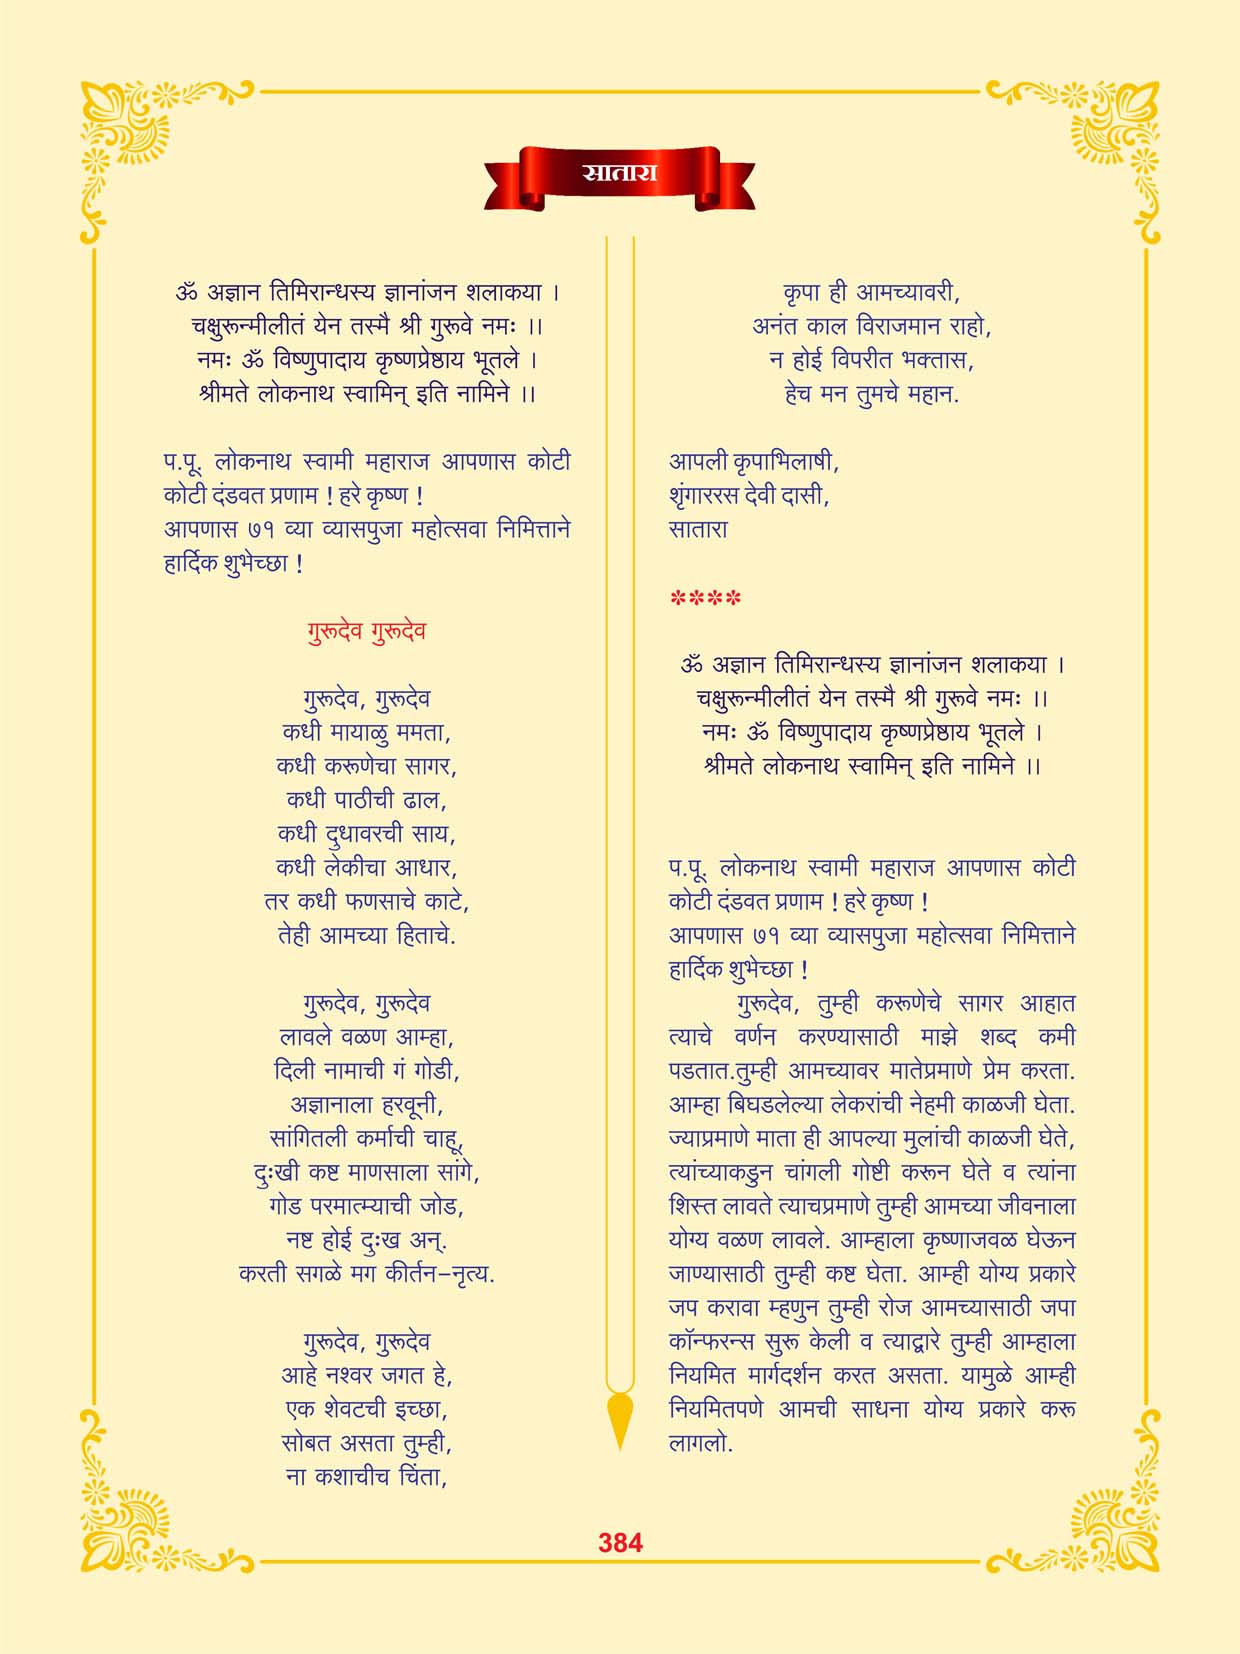 सातारा
ॐ अज्ञान तिमिरान्धस्य ज्ञानांजन शलाकया ।
चक्षुरून्मीलीतं येन तस्मै श्री गुरूवे नमः ।।
नमः ॐ विष्णुपादाय कृष्णप्रेष्ठाय भूतले ।
श्रीमते लोकनाथ स्वामिन् इति नामिने ।।
प.पू. लोकनाथ स्वामी महाराज आपणास कोटी
कोटी दंडवत प्रणाम ! हरे कृष्ण !
आपणास ७१ व्या व्यासपुजा महोत्सवा निमित्ताने
हार्दिक शुभेच्छा !
गुरूदेव गुरूदेव
गुरूदेव, गुरूदेव
कधी मायाळु ममता,
कधी करूणेचा सागर,
कधी पाठीची ढाल,
कधी दुधावरची साय,
कधी लेकीचा आधार,
तर कधी फणसाचे काटे,
तेही आमच्या हिताचे.
गुरूदेव, गुरूदेव
लावले वळण आम्हा,
दिली नामाची गं गोडी,
अज्ञानाला हरवूनी,
सांगितली कर्माची चाहू,
दुःखी कष्ट माणसाला सांगे,
गोड परमात्म्याची जोड,
नष्ट होई दुःख अन्.
करती सगळे मग कीर्तन-नृत्य.
गुरूदेव, गुरूदेव
आहे नश्वर जगत हे,
एक शेवटची इच्छा,
सोबत असता तुम्ही,
ना कशाचीच चिंता,
कृपा ही आमच्यावरी,
अनंत काल विराजमान राहो,
न होई विपरीत भक्तास,
हेच मन तुमचे महान.
आपली कृपाभिलाषी,
शृंगाररस देवी दासी,
सातारा
****
ॐ अज्ञान तिमिरान्धस्य ज्ञानांजन शलाकया ।
चक्षुरून्मीलीतं येन तस्मै श्री गुरूवे नमः ।।
नमः ॐ विष्णुपादाय कृष्णप्रेष्ठाय भूतले ।
श्रीमते लोकनाथ स्वामिन् इति नामिने ।।
प.पू. लोकनाथ स्वामी महाराज आपणास कोटी
कोटी दंडवत प्रणाम ! हरे कृष्ण !
आपणास ७१ व्या व्यासपुजा महोत्सवा निमित्ताने
हार्दिक शुभेच्छा !
गुरूदेव, तुम्ही करूणेचे सागर आहात
त्याचे वर्णन करण्यासाठी माझे शब्द कमी
पडतात.तुम्ही आमच्यावर मातेप्रमाणे प्रेम करता.
आम्हा बिघडलेल्या लेकरांची नेहमी काळजी घेता.
ज्याप्रमाणे माता ही आपल्या मुलांची काळजी घेते,
त्यांच्याकडुन चांगली गोष्टी करून घेते व त्यांना
शिस्त लावते त्याचप्रमाणे तुम्ही आमच्या जीवनाला
योग्य वळण लावले. आम्हाला कृष्णाजवळ घेऊन
जाण्यासाठी तुम्ही कष्ट घेता. आम्ही योग्य प्रकारे
जप करावा म्हणुन तुम्ही रोज आमच्यासाठी जपा
कॉन्फरन्स सुरू केली व त्याद्वारे तुम्ही आम्हाला
नियमित मार्गदर्शन करत असता. यामुळे आम्ही
नियमितपणे आमची साधना योग्य प्रकारे करू
लागलो.
384